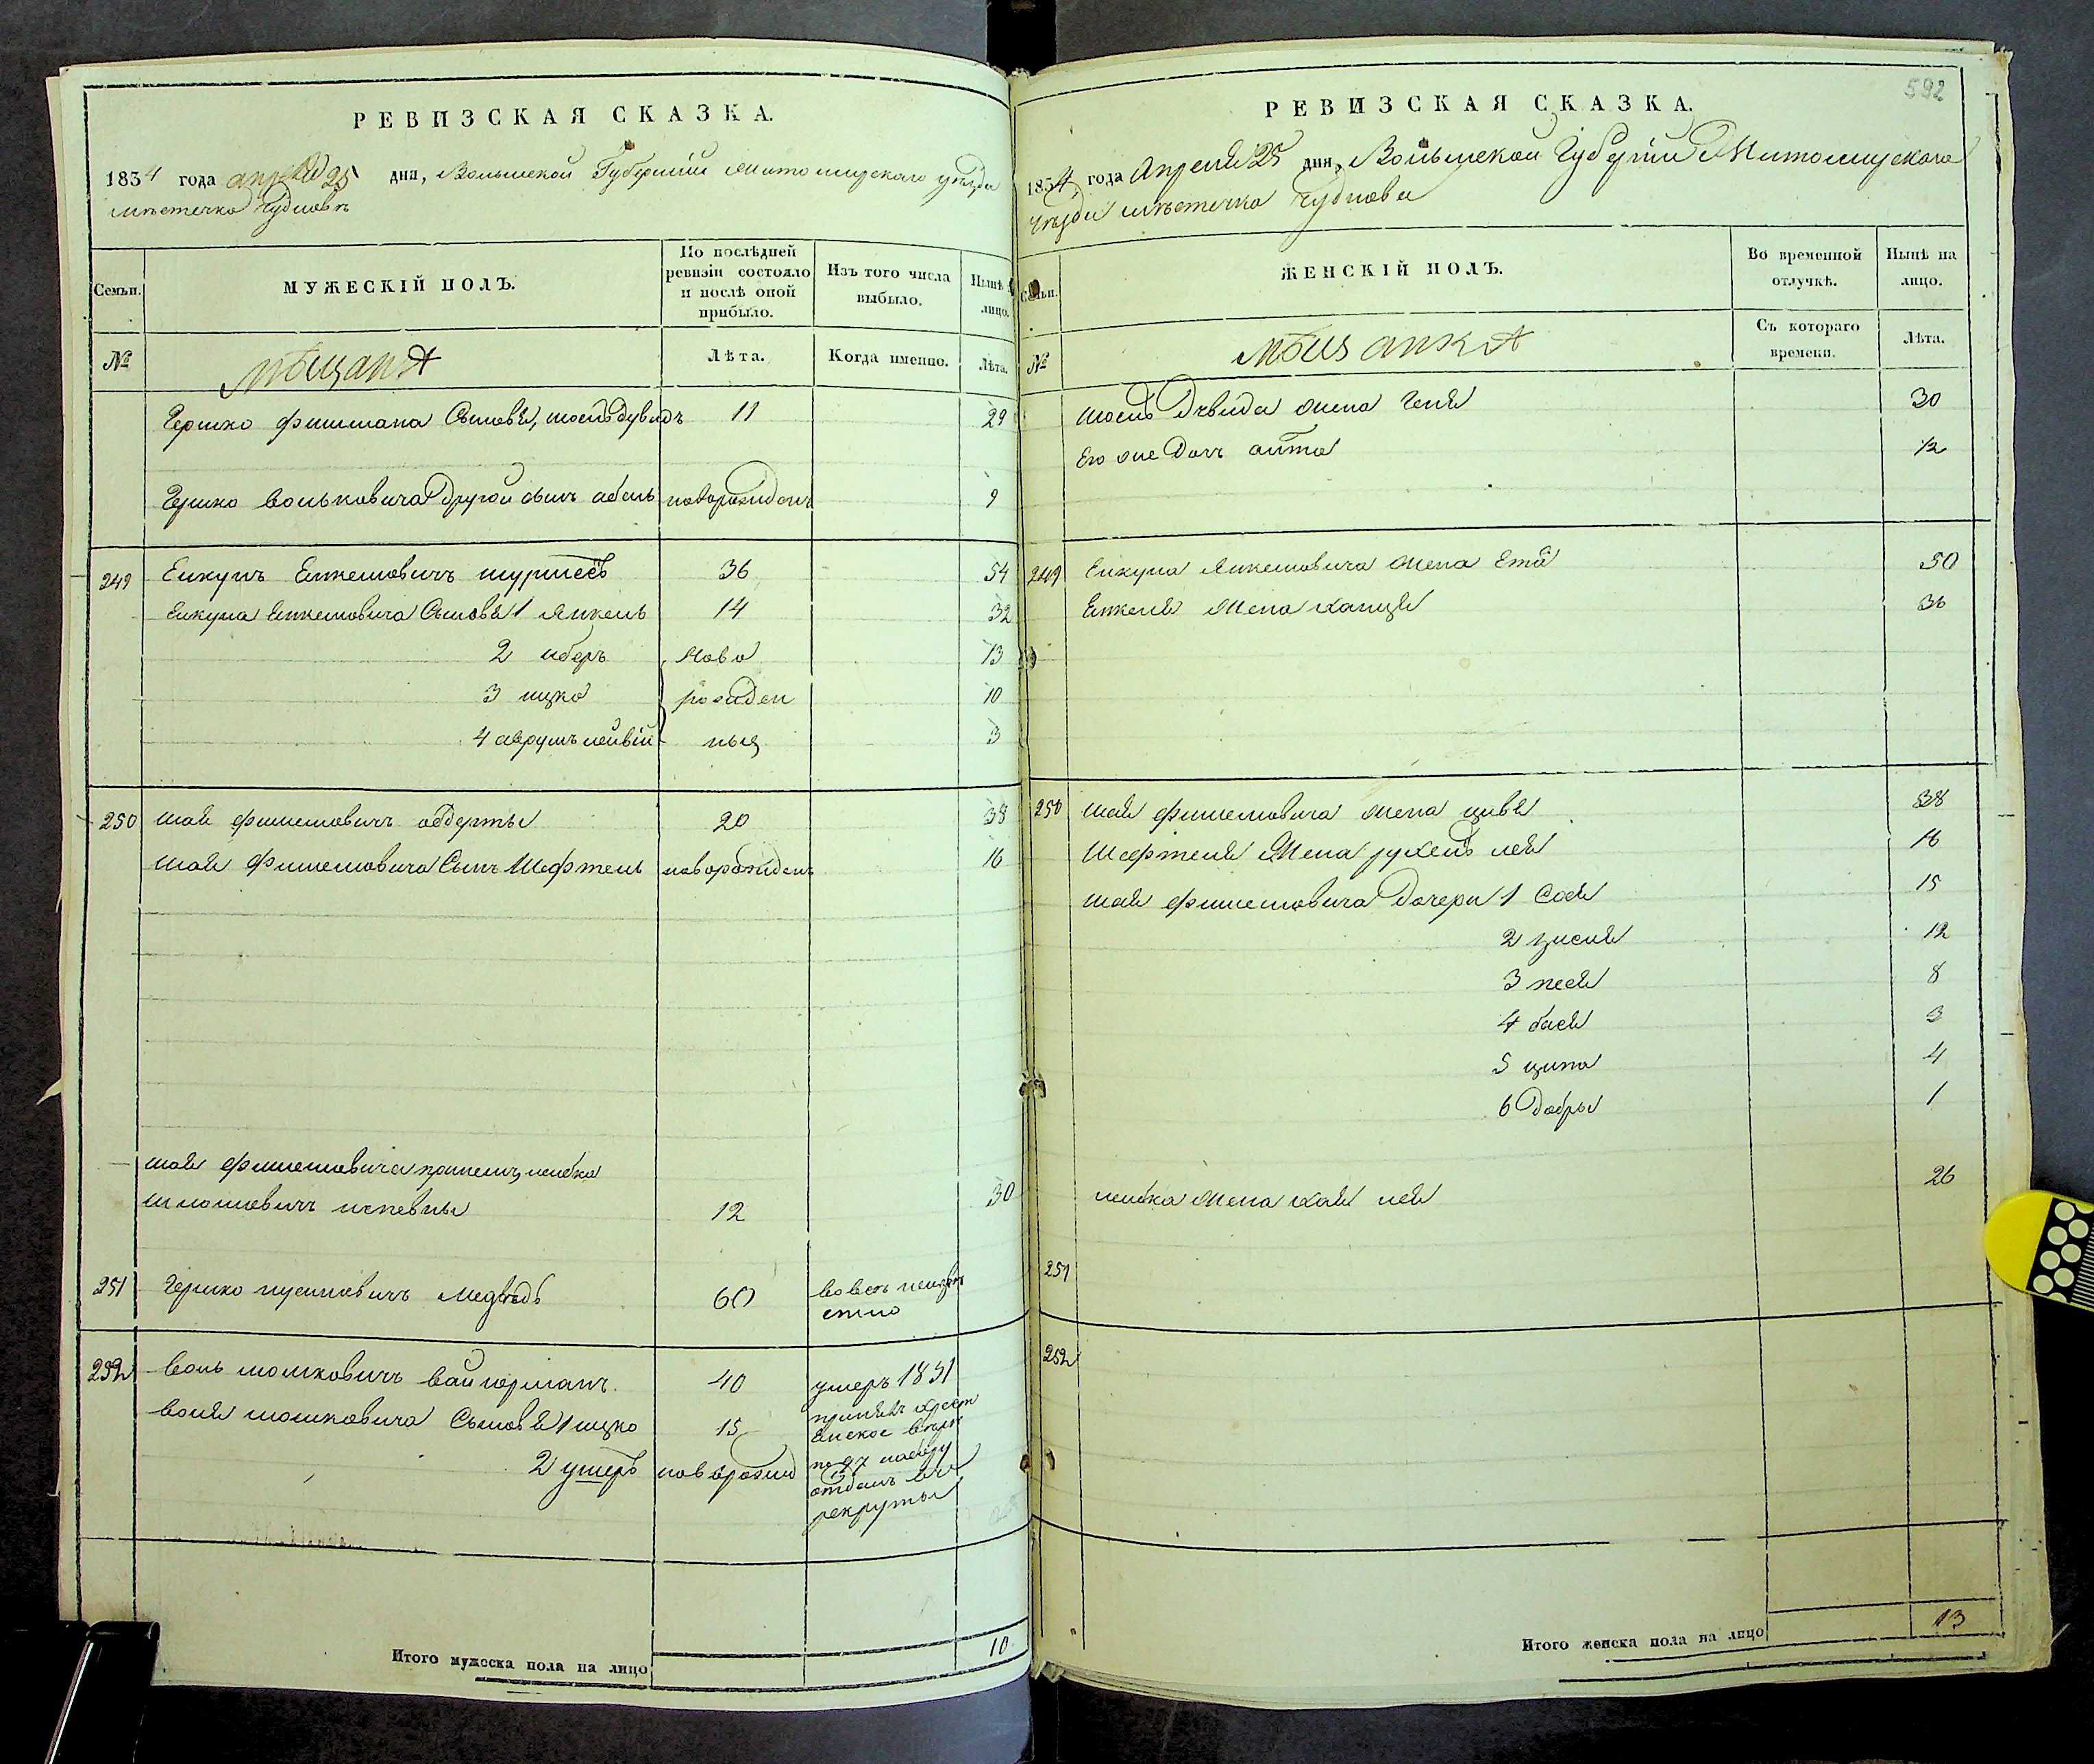 РЕВИЗСКАЯ СКАЗКА.
1854 года апреля 25 дня, Волынской Губернии Житомирскаго уезда
местечка Чуднова
Семьи.
МУЖЕСКІЙ ПОЛЪ.
По послѣдней ревизіи состояло и послѣ оной прибыло.
Изъ того числа выбыло.
Нынѣ на лицо.
№
мѣщанѣ
Лѣта.
Когда именно.
Лѣта.
Гершко фишмана Сыновя, мось дувидъ 11 29
Гершко вольковича другой сынъ абель новорожденъ 9
249 Еикумъ Енкелювичъ 36 54
Еикума Енкелювича Сыновя 1 Янкель 14 32
2 иберъ ново 13
3 ицко рожден 10
4 аврумъ лейвій ныя 3
250 шая фишелювичъ 20 38
шая Фишелювича Сынъ Шефтель новорожденъ 16
шая фишелювича лейбка
шлюмовичъ 12 30
251 Гершко нусиновичъ Медвѣдь 60 безвестно
252 воль мошковичъ вайнерманъ 40 умеръ 1851
воля мошковича Сыновя 1 ицко 15
2 умеръ новорожд
отданъ въ
рекруты
Итого мужеска пола на лицо 10
592
РЕВИЗСКАЯ СКАЗКА.
1854 года Апреля 25 дня, Волынской Губернии Житомирскаго
уезда местечка Чуднова
Семьи.
ЖЕНСКІЙ ПОЛЪ.
Во временной отлучкѣ.
Нынѣ на лицо.
№
мѣщанкѣ
Съ котораго времени.
Лѣта.
мось Дувида жена Геня 30
Его же Дочъ 12
249 Еикума Янкелювича жена Ета 50
Енкеля жена ханця 36
250 шая фишелювича жена цивя 38
Шефтеля Жена рухель лея 16
шая фишелювича Дочери 1 Сося 15
2 12
3 песя 8
4 бася 3
5 ципа 4
6 Добры 1
лейбка жена хая лея 26
251
252
Итого женска пола на лицо 13